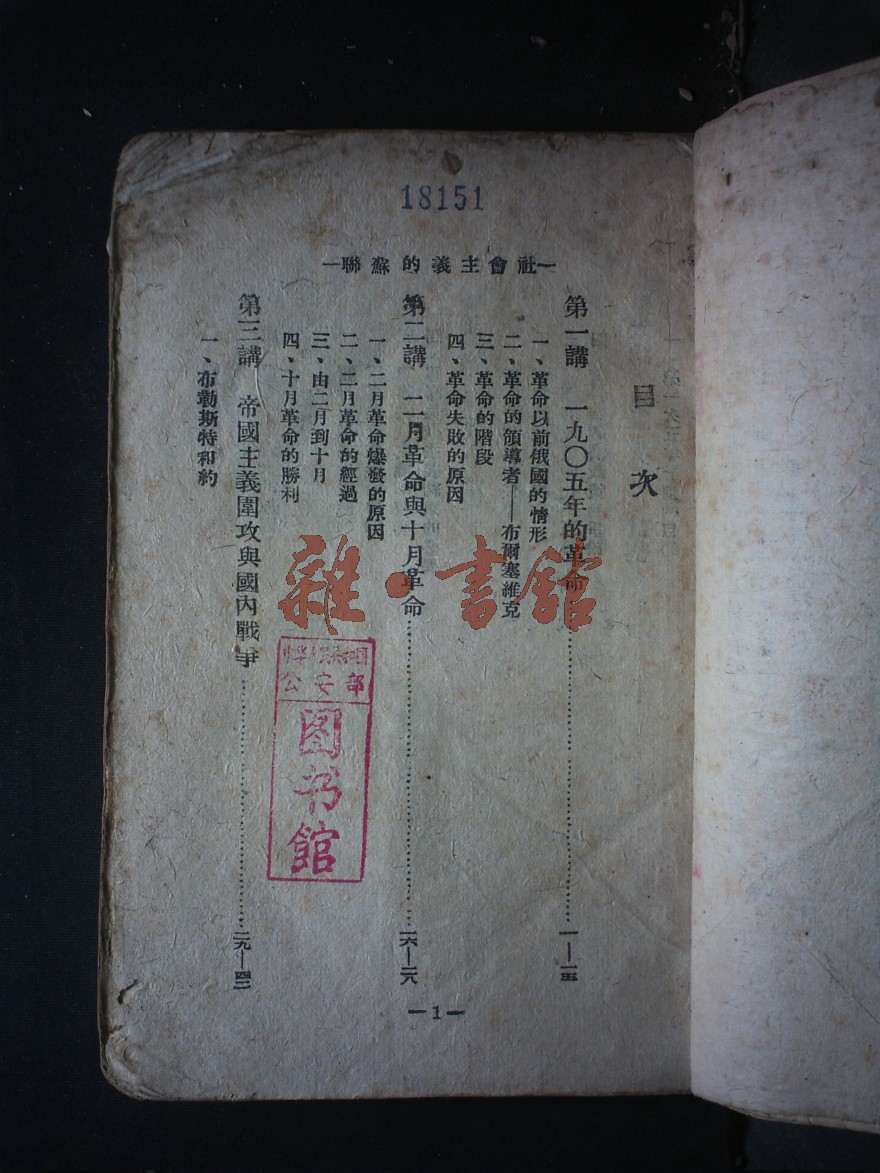 18151
—社會主義的蘇聯—
目次
第一講 一九〇五年的革命…………一—一五
一、革命以前俄國的情形
二、革命的領導者——布爾塞維克
三、革命的階段
四、革命失敗的原因
第二講 二月革命與十月革命…………一六—二八
一、二月革命爆發的原因
二、二月革命的經過
三、由二月到十月
四、十月革命的勝利
第三講 帝國主義圍攻與國內戰爭…………二九—四二
一、布勒斯特和約
雜·書館
公安部
图书館
—1—